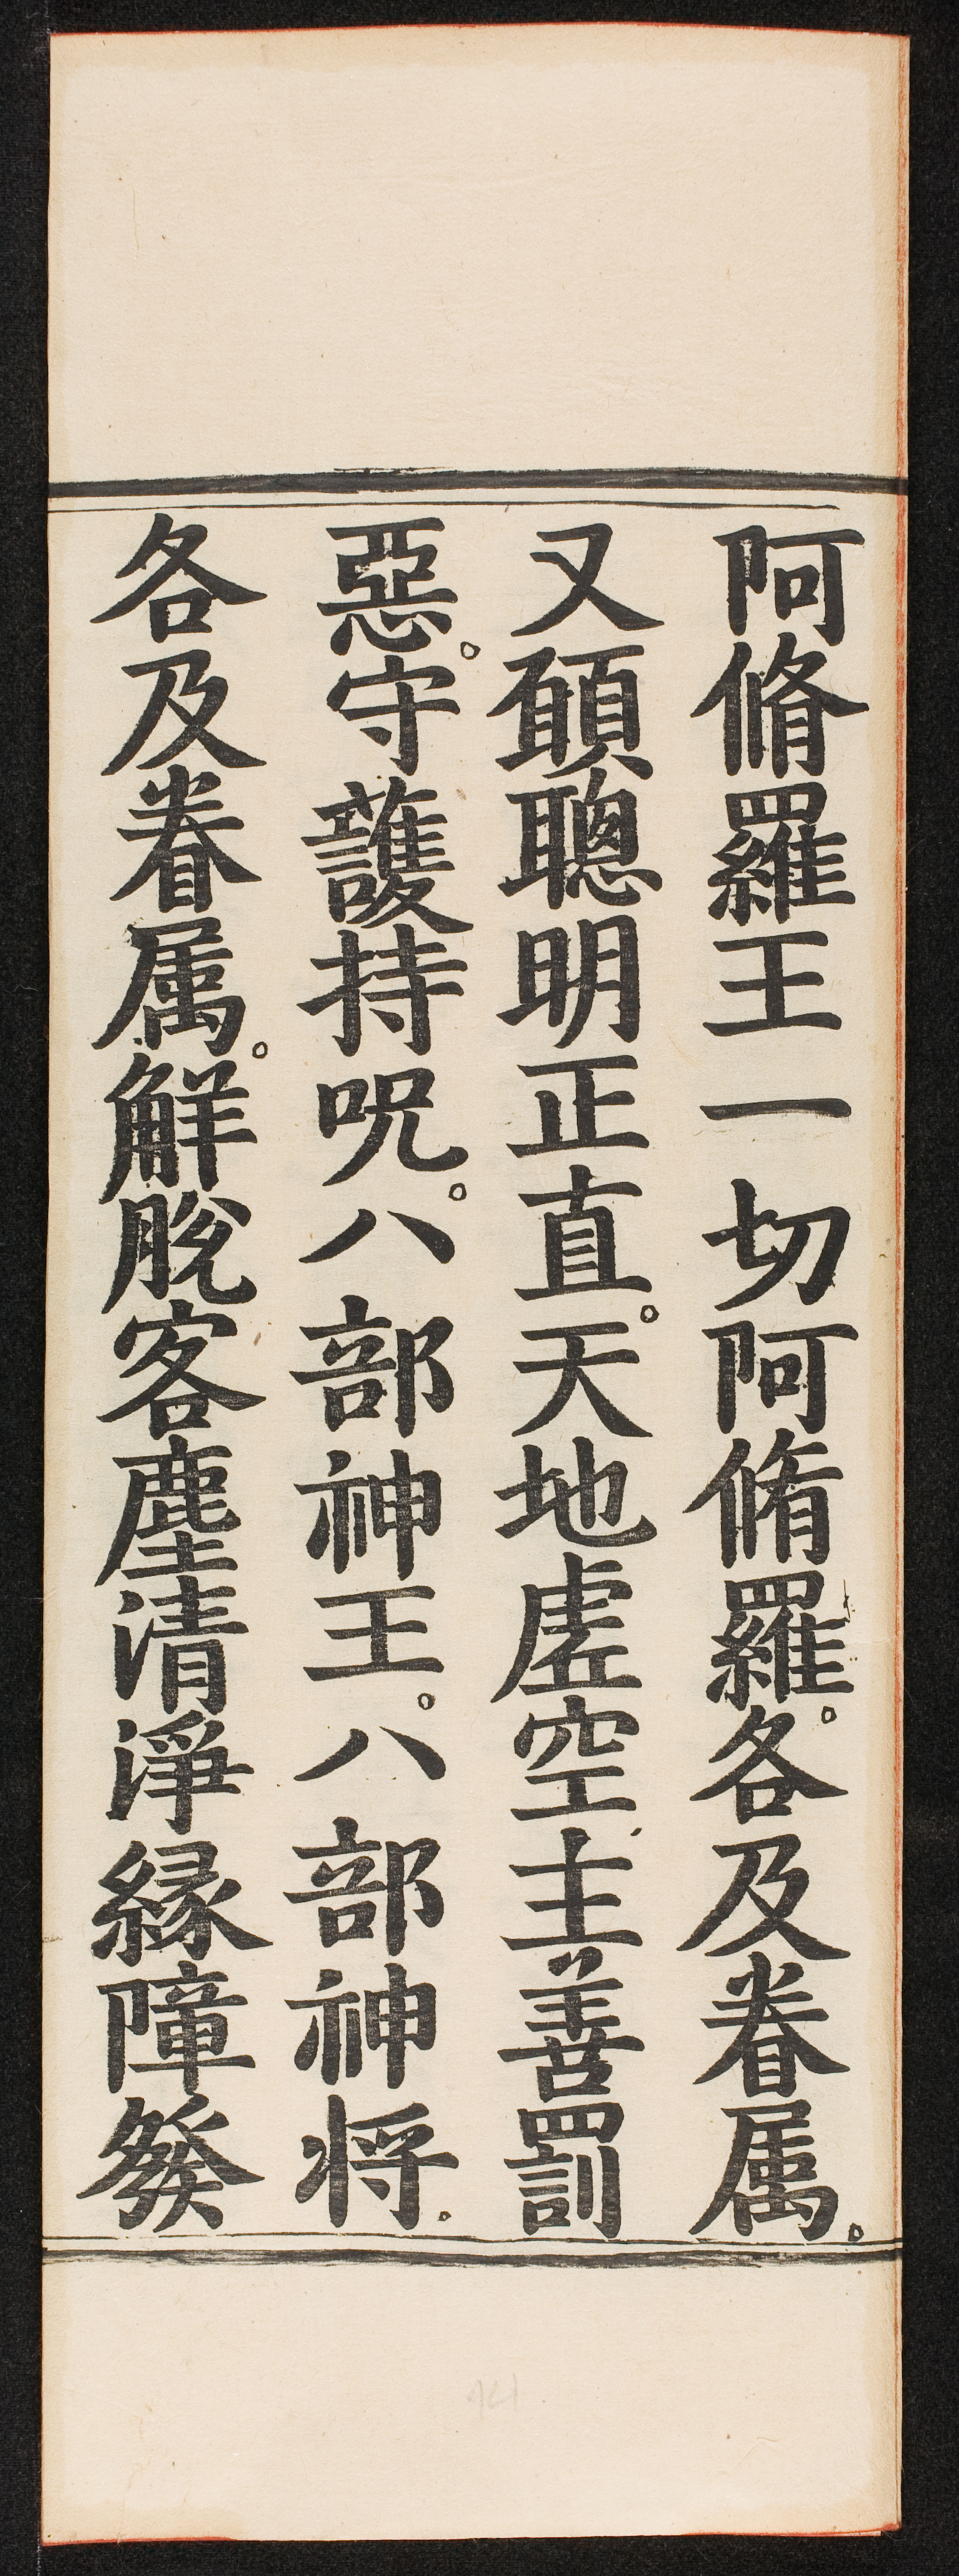 阿脩羅王一切阿脩羅。各及眷属。
又願聰明正直。天地虗空主善罰
惡。守護持呪。八部神王。八部神将。
各及眷属。解脫客塵清淨縁障發